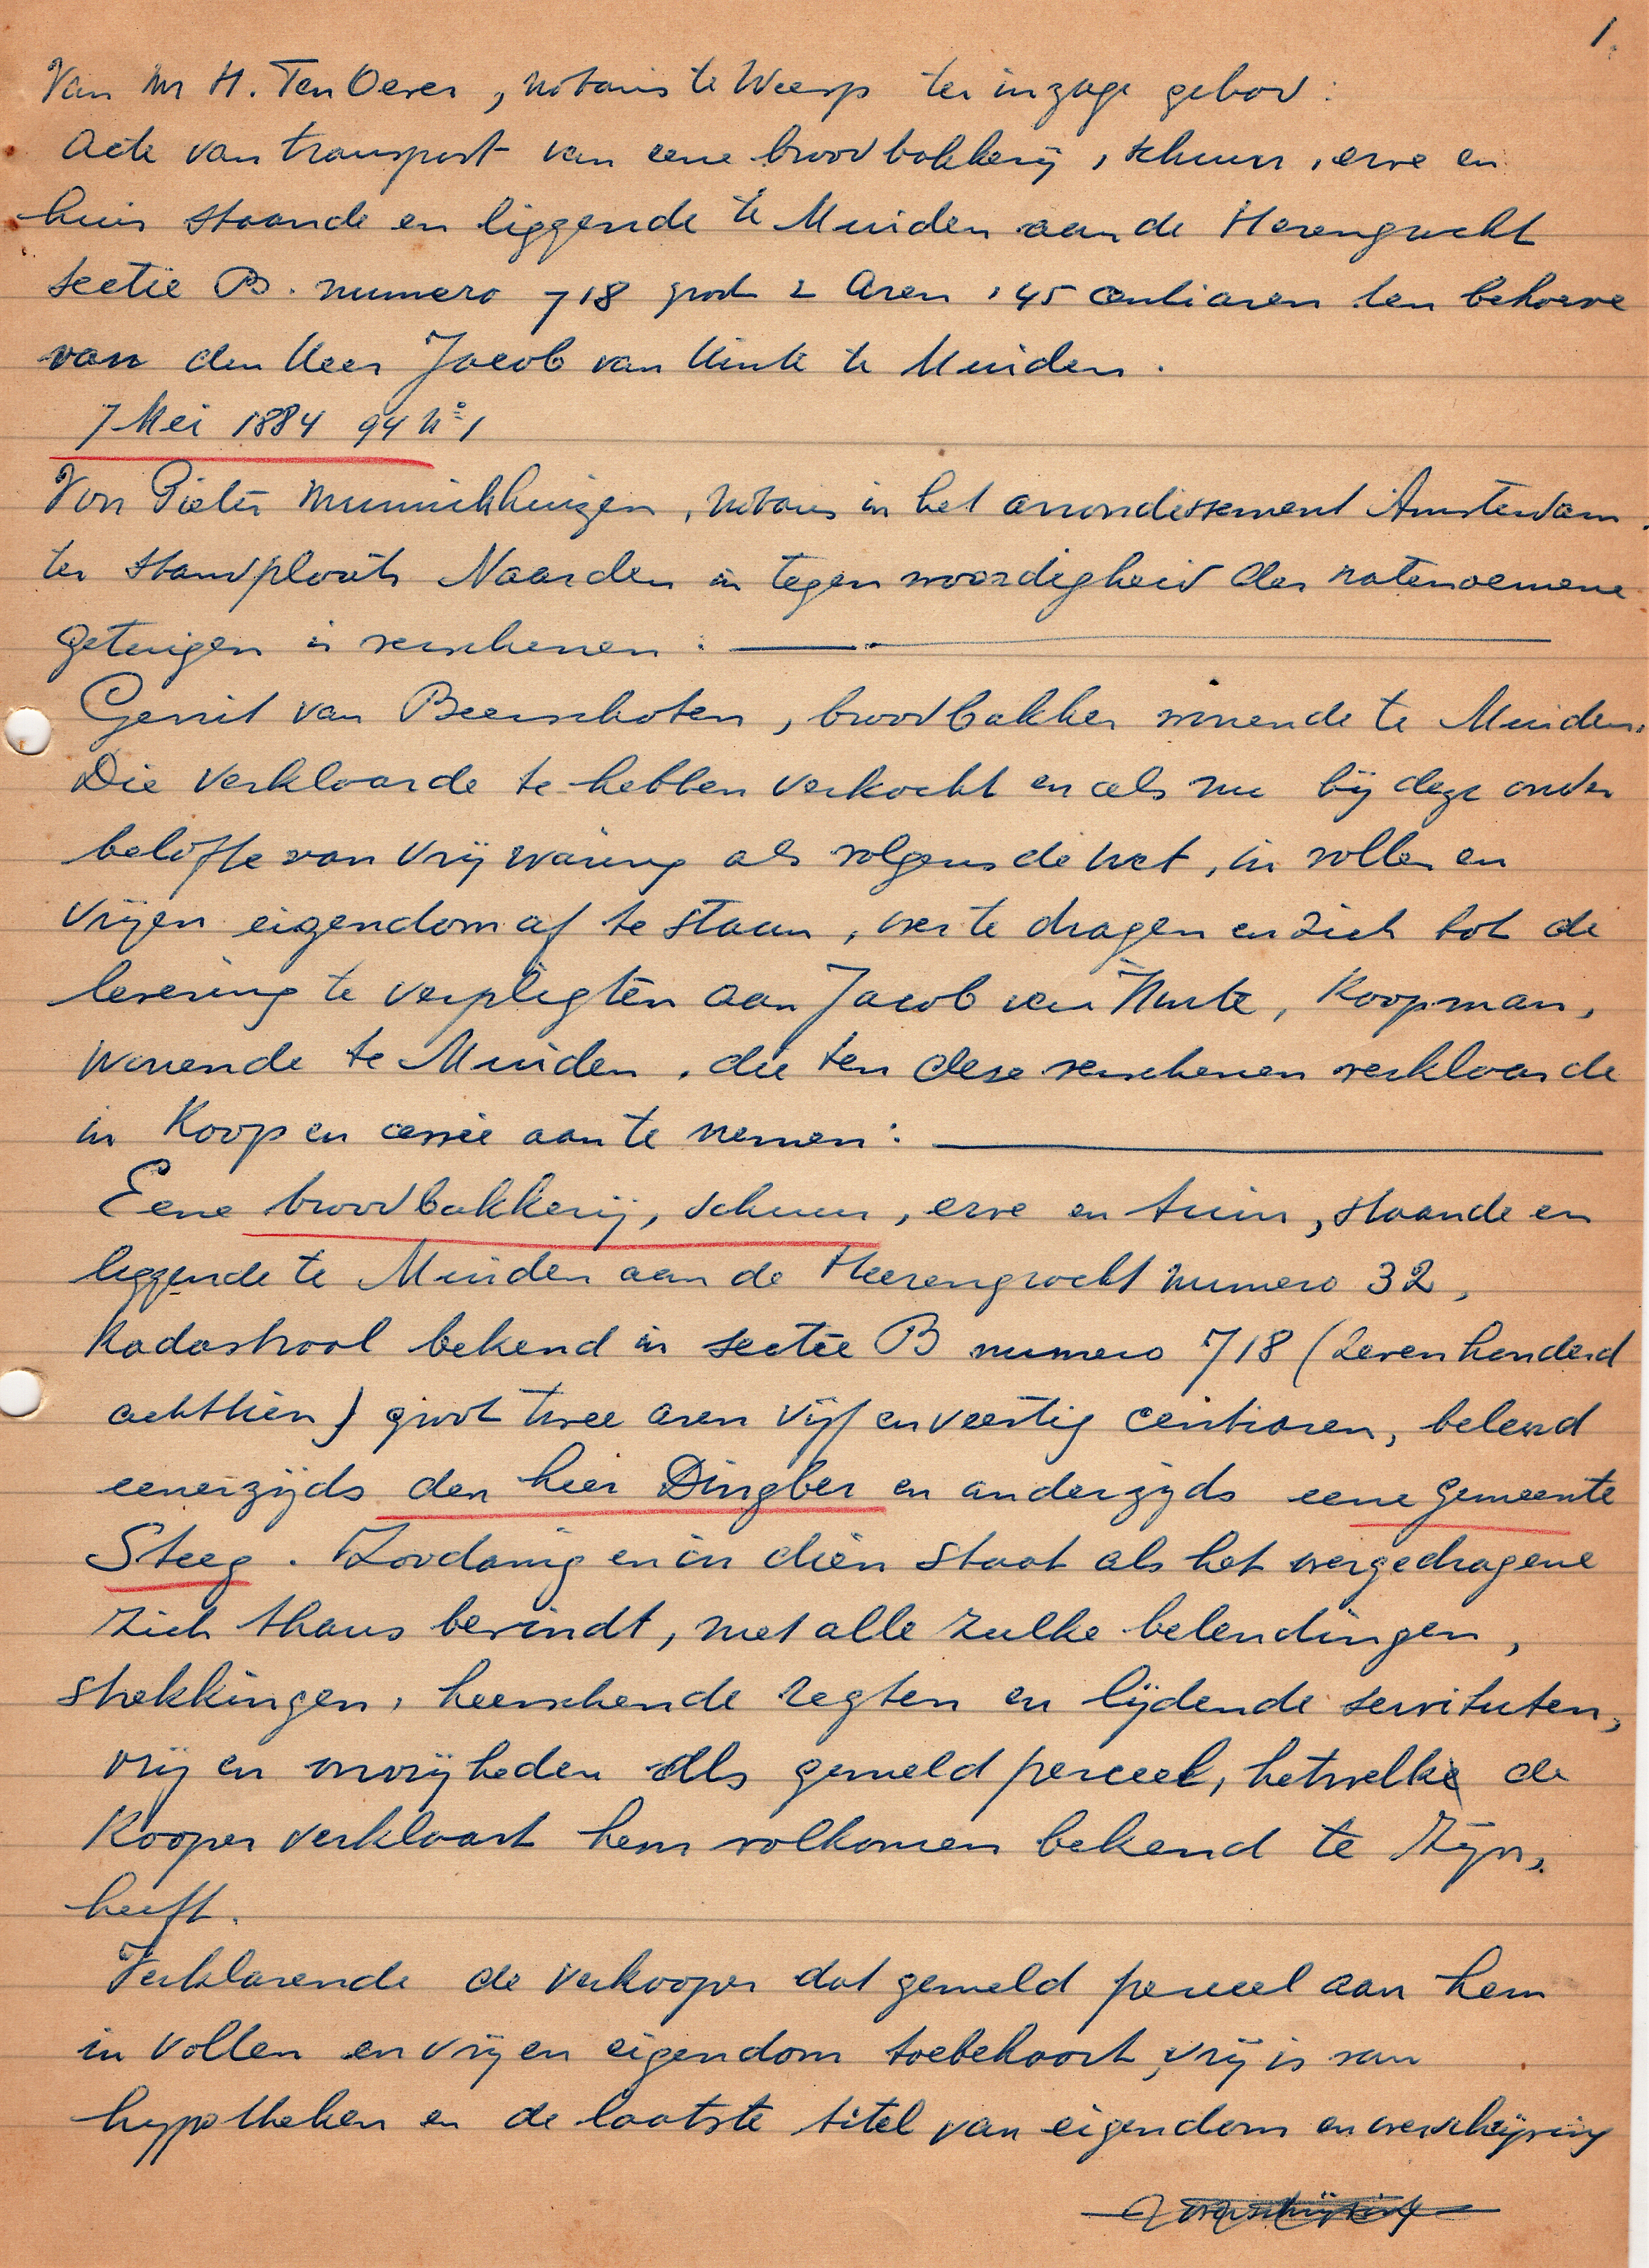 1.
Van Mr H. Ten Oever, notaris te Weesp ter inzage gehad:
Acte van transport van eene broodbakkerij, schuur, erve en
huis staande en liggende te Muiden aan de Herengracht
sectie B. numero 718 groot 2 Aren, 45 centiaren ten behoeve
van den Heer Jacob van Stente te Muiden.
7 Mei 1884 94 No 1
Voor Pieter Munnickhuizen, notaris in het arrondissement Amsterdam.
ter standplaats Naarden in tegenwoordigheid der natenoemene
getuigen is verschenen:
Gerrit van Beerschoten, broodbakker wonende te Muiden.
Die verklaarde te hebben verkocht en als nu bij deze onder
belofte van vrijwaring als volgens de wet, in vollen en
vrijen eigendom af te staan, over te dragen en zich tot de
levering te verpligten aan Jacob van, Koopman,
wonende te Muiden, die ten deze verschenen verklaarde
in Koop en cessie aan te nemen:
Eene broodbakkerij, schuur, erve en tuin, staande en
liggende te Muiden aan de Heerengracht numero 32,
Kadastraal bekend in sectie B numero 718 (zevenhonderd
achttien) groot twee aren vijf en veertig centiaren, belend
eenerzijds den heer Dingber en anderzijds eene gemeente
Steeg. Zoodanig en in dien staat als het overgedragene
zich thans bevindt, met alle zulke belendingen,
strekkingen, heerschende regten en lijdende servituten,
vrij en onvrijheden als gemeld perceel, hetwelk de
Kooper verklaart hem volkomen bekend te zijn,
heeft.
Verklarende de verkooper dat gemeld perceel aan hem
in vollen en vrijen eigendom toebehoort, vrij is van
hypotheken en de laatste titel van eigendom en overschrijving